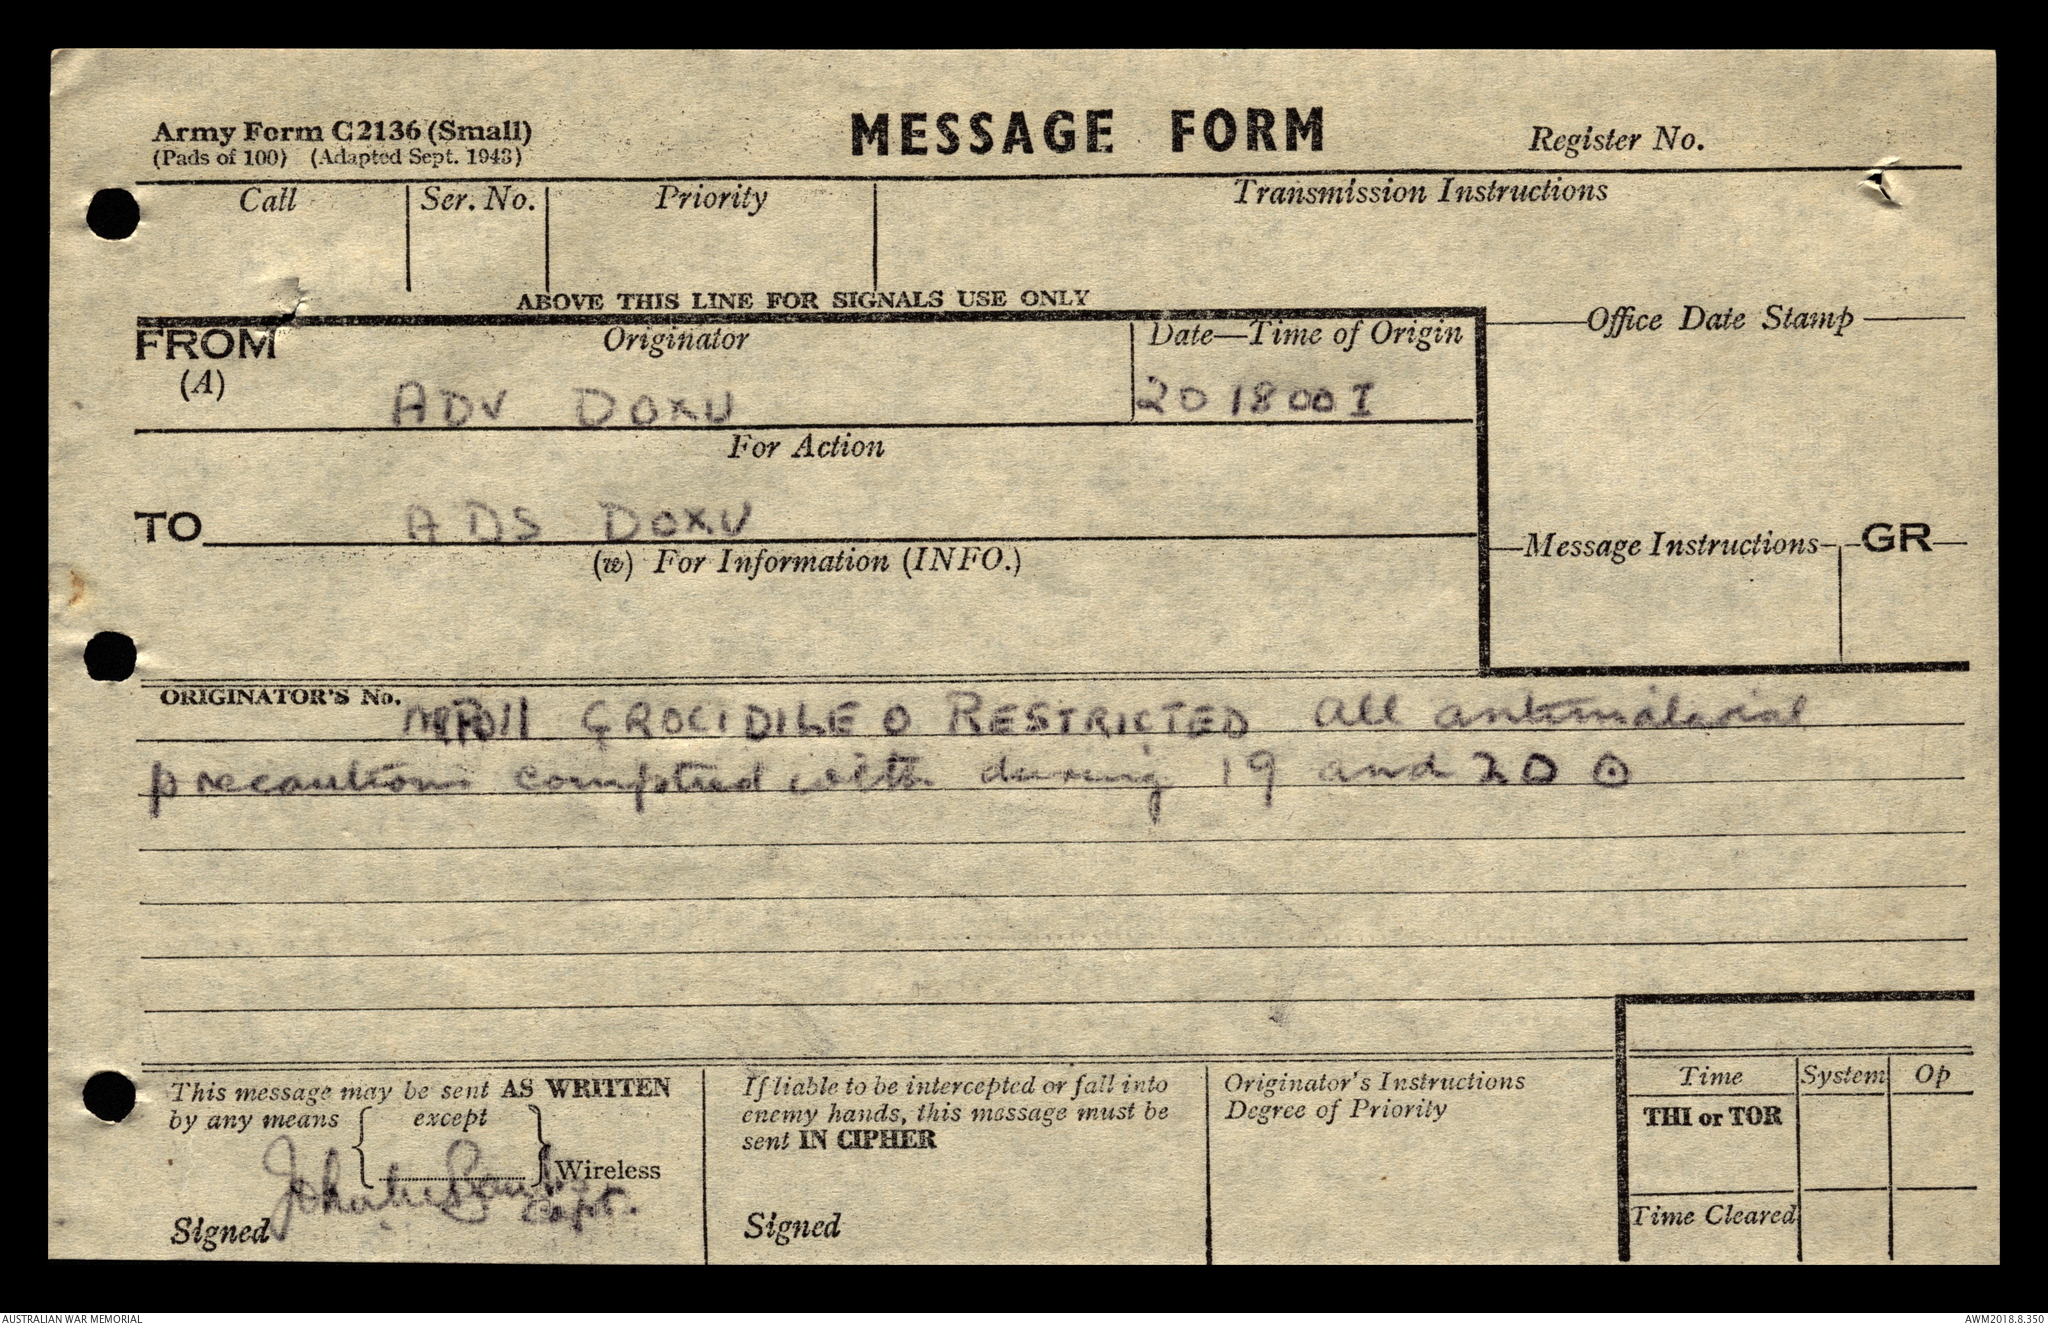 Army Form C2136 (Small)
(Pads of 100) (Adapted Sept. 1943)
MESSAGE FORM
Register No.
Call
Ser. No.
Priority
Transmission Instructions
ABOVE THIS LINE FOR SIGNALS USE ONLY
FROM
(A)
Originator
Date—Time of Origin
Office Date Stamp
ADV DOXU
20 1800 I
For Action
TO ADS DOXU
(w) For Information (INFO.)
Message Instructions
GR
ORIGINATOR'S No.
CROCIDILE O RESTRICTED all antimalarial
precautions complied with during 19 and 20 ⊙
This message may be sent AS WRITTEN
by any means { except
} Wireless
Capt.
Signed
If liable to be intercepted or fall into
enemy hands, this message must be
sent IN CIPHER
Signed
Originator's Instructions
Degree of Priority
Time
System
Op
THI or TOR
Time Cleared
AUSTRALIAN WAR MEMORIAL
AWM2018.8.350